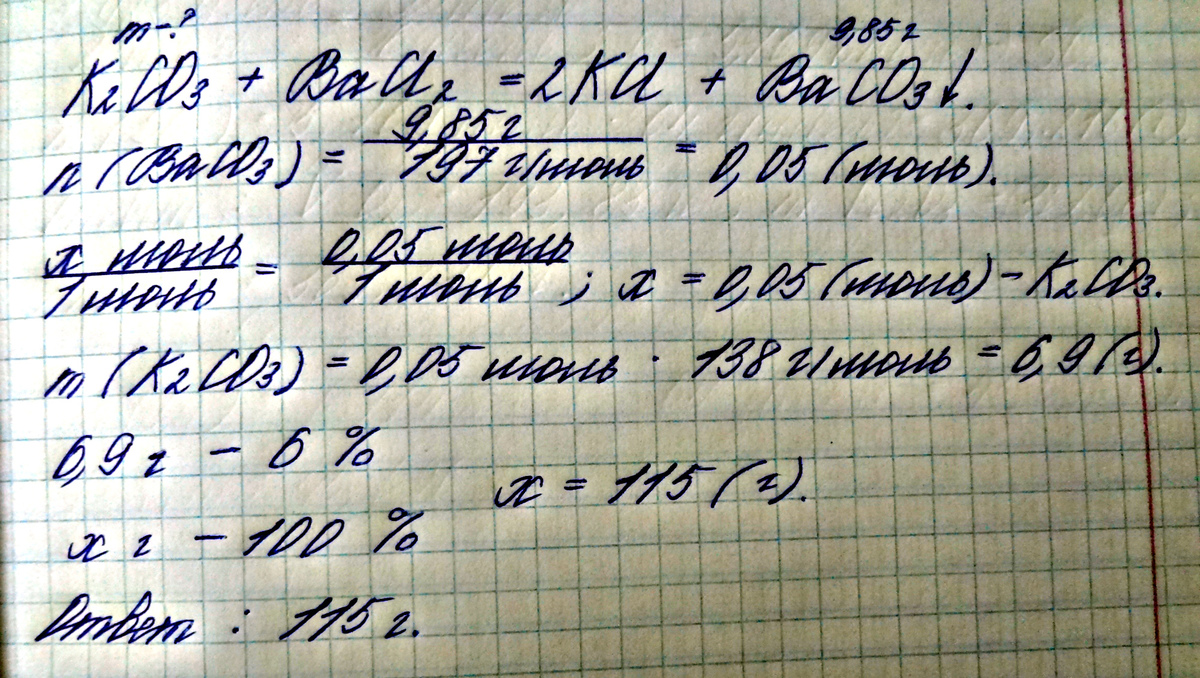 m-? 9,85 г
K₂CO₃ + BaCl₂ = 2KCl + BaCO₃↓.
n (BaCO₃) = 9,85 г / 197 г/моль = 0,05 (моль).
x моль / 1 моль = 0,05 моль / 1 моль ; x = 0,05 (моль) - K₂CO₃.
m (K₂CO₃) = 0,05 моль · 138 г/моль = 6,9 (г).
6,9 г - 6 %
x = 115 (г).
x г - 100 %
Ответ : 115 г.